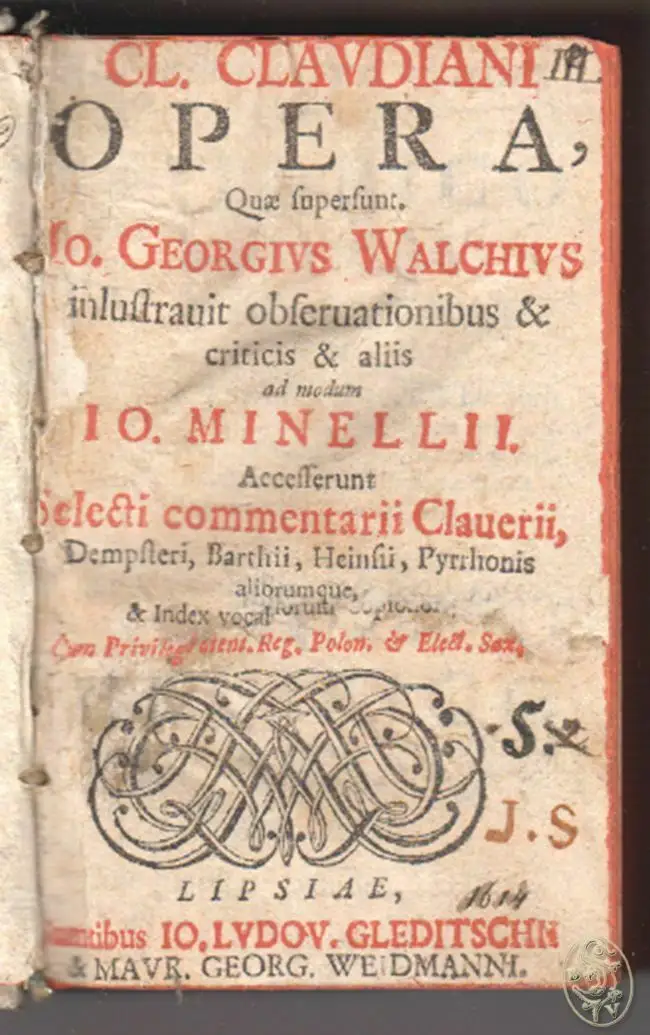 CL. CLAVDIANI
OPERA,
Quæ ſuperſunt.
IO. GEORGIVS WALCHIVS
inluſtrauit obſeruationibus &
criticis & aliis
ad modum
IO. MINELLII.
Acceſſerunt
Selecti commentarii Clauerii,
Dempſteri, Barthii, Heinſii, Pyrrhonis
aliorumque,
& Index vocab
Cum Privileg. Reg. Polon. & Elect. Sax.
S.
J.S
LIPSIAE,
1614
IO. LVDOV. GLEDITSCHII
& MAVR. GEORG. WEIDMANNI.